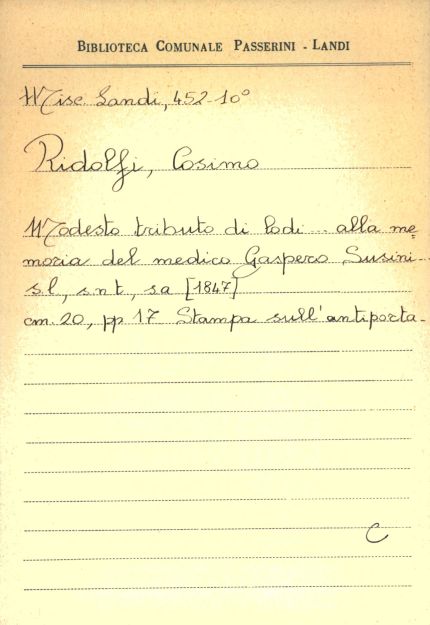 BIBLIOTECA COMUNALE PASSERINI - LANDI
Misc. Landi, 452-10°
Ridolfi, Cosimo
Modesto tributo di lodi... alla me-
moria del medico Gaspero Susini-
s.l, s.n.t, s.a [1847]
cm. 20, pp 17 Stampa sull'antiporta-
C